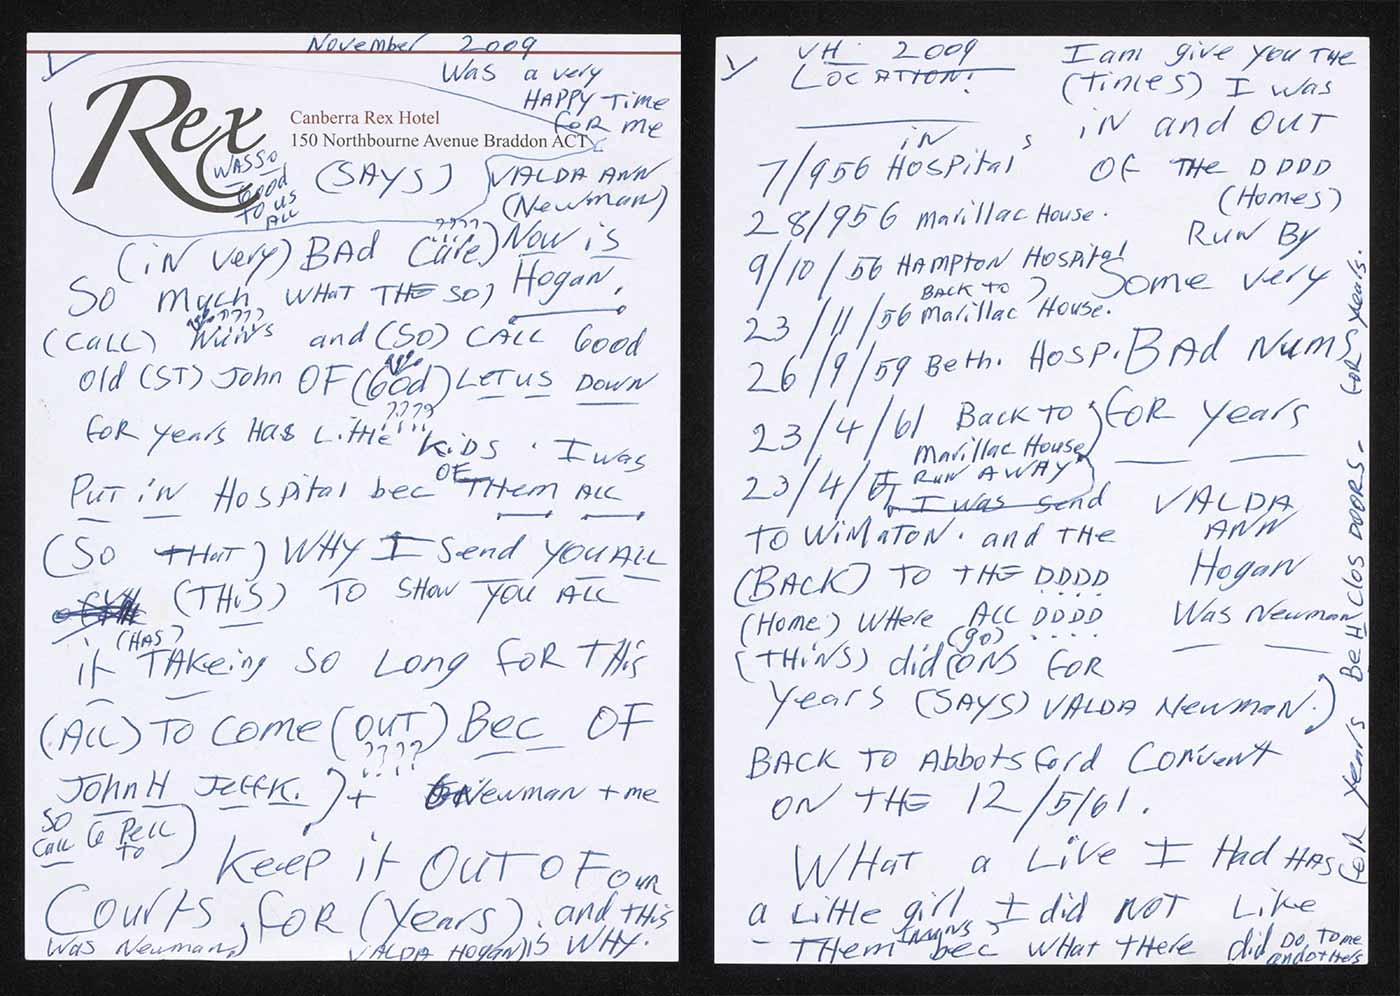 November 2009
Was a very
HAPPY Time
FOR me
Rex
Canberra Rex Hotel
150 Northbourne Avenue Braddon ACT
WAS SO
Good
TO US
ALL
(SAYS) VALDA ANN
(Newman)
????
(iN very) BAd Care) Now is
SO much WHAT THE SO, Hogan.
????
(CALL) Nuns and (SO) CALL Good
Old (ST) John OF (God) LET US DOWN
????
FOR years HAS Little KiDS. I was
OF
PUT iN HOSPital bec THem ALL
(SO THAT) WHY I Send YOU ALL
(THiS) TO SHOW YOU ALL
(HAS)
it TAKeing SO LONG FOR THis
(ALL) TO Come (OUT) Bec OF
????
JOHN H JeffK.) + Newman + me
SO
CALL G PeLL
TO
Keep it OUT OF our
Courts, FOR (years). and THis
Was Newman) VALDA HOGAN) is WHY.
VH. 2009
LOCATION.
I am give you THE
(Times) I was
iN and OUT
OF THE DDDD
(Homes)
RUN By
Some very
BAd NUNS
FOR years
VALDA
ANN
Hogan
Was Newman
iN
7/956 HOSPital's
28/956 Marillac House.
9/10/56 HAMPTON HOSPital
BACK TO)
23/11/56 Marillac House.
26/9/59 Beth. HOSP.
23/4/61 BACK TO
Marillac House)
23/4/ RUN AWAY
I was send
TO WiNLATON. and THE
(BACK) TO THE DDDD
(Home) WHere ALL DDDD
(go)
(THiNS) did ONS FOR
years (SAYS) VALDA Newman.)
BACK TO Abbotsford Convent
ON THE 12/5/61.
WHAT a LiVe I Had HAS
a Little girl I did NOT Like
(NUNS)
THem bec WHAT THere did DO TO me
and others
FOR years BeH CLOS DOORS - FOR years.